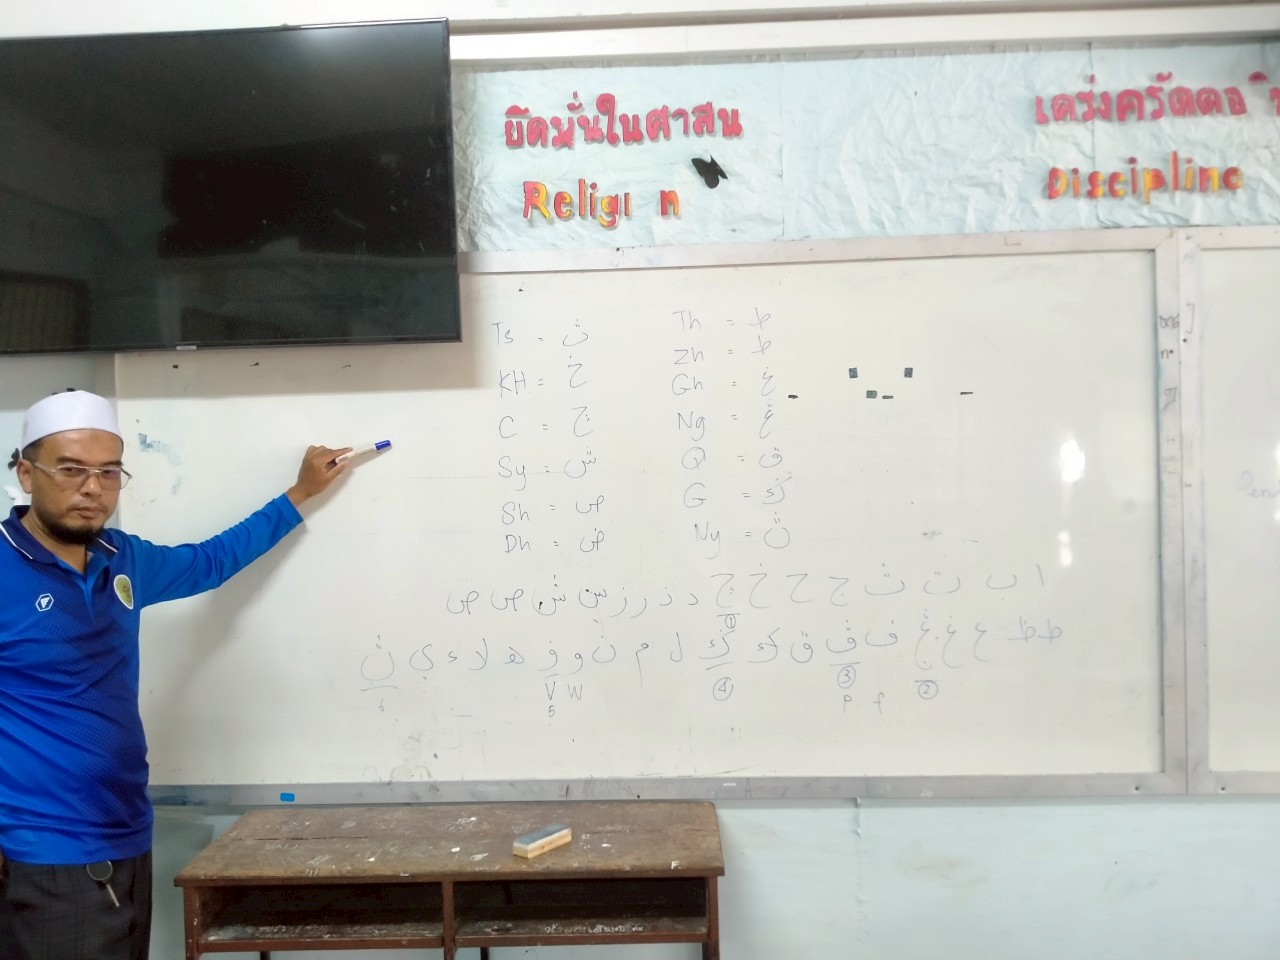 ยึดมั่นในศาสน
Religi n
เคร่งครัดต่อ
Discipline
Ts = ث
KH = خ
C = چ
Sy = ش
Sh = ص
Dh = ض
Th = ط
Zh = ظ
Gh = غ
Ng = ڠ
Q = ق
G = ݢ
Ny = ڽ
ا ب ت ث ج ح خ چ د ذ ر ز س ش ص ض
①
ط ظ ع غ ڠ ف ڤ ق ک ݢ ل م ن و ۏ ه لا ء ي ڽ
② ③ ④
V W
5
P f
6